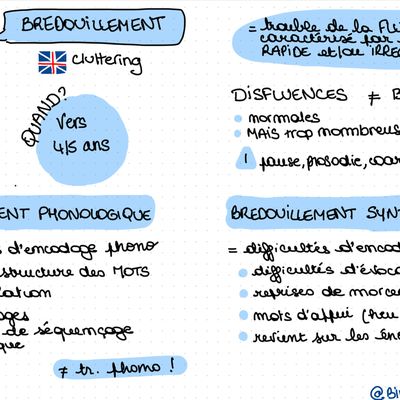 BREDOUILLEMENT
cluttering
QUAND?
Vers
4/5 ans
= trouble de la
caractérisé par
RAPIDE et/ou
DISFLUENCES ≠
normales
MAIS trop
! pause, prosodie,
PHONOLOGIQUE
d'encodage phono
structure des MOTS
de séquençage
≠ tr. phono !
BREDOUILLEMENT
= difficultés
difficultés
reprises de
mots d'appui (heu
revient sur les